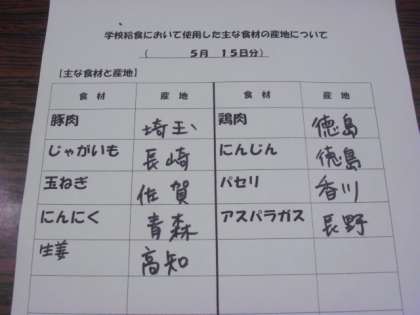 学校給食において使用した主な食材の産地について
（ 5月 15日分）
【主な食材と産地】
食材 産地 食材 産地
豚肉 埼玉 鶏肉 徳島
じゃがいも 長崎 にんじん 徳島
玉ねぎ 佐賀 パセリ 香川
にんにく 青森 アスパラガス 長野
生姜 高知